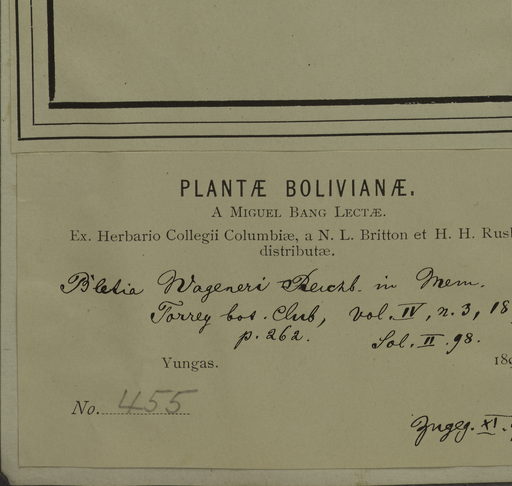 PLANTÆ BOLIVIANÆ.
A MIGUEL BANG LECTÆ.
Ex. Herbario Collegii Columbiæ, a N. L. Britton et H. H. Rusb
distributæ.
Bletia Wageneri Reichb. in Mem.
Torrey bot. Club, vol. IV, n. 3, 18
p. 262. Sol. II. 98.
Yungas. 189
No. 455
Zugeg. XI.